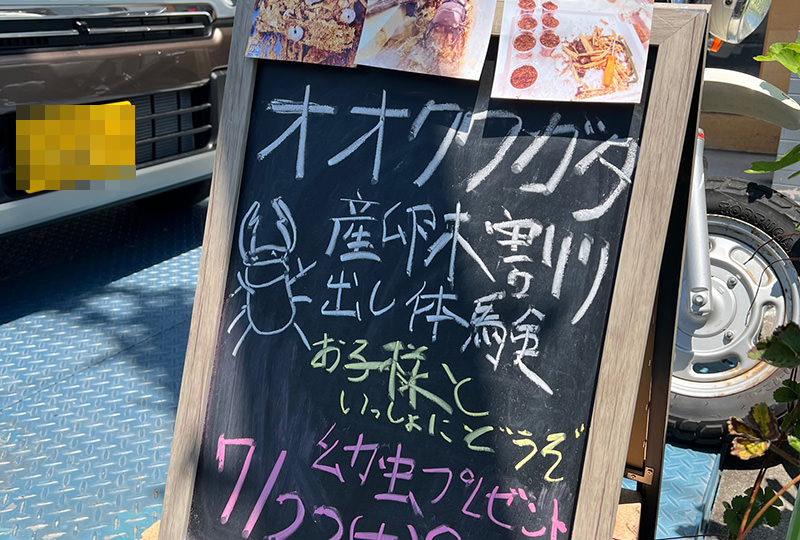 オオクワガタ
産卵木割り
出し体験
お子様と
いっしょにどうぞ
幼虫プレゼント
7/22(土)